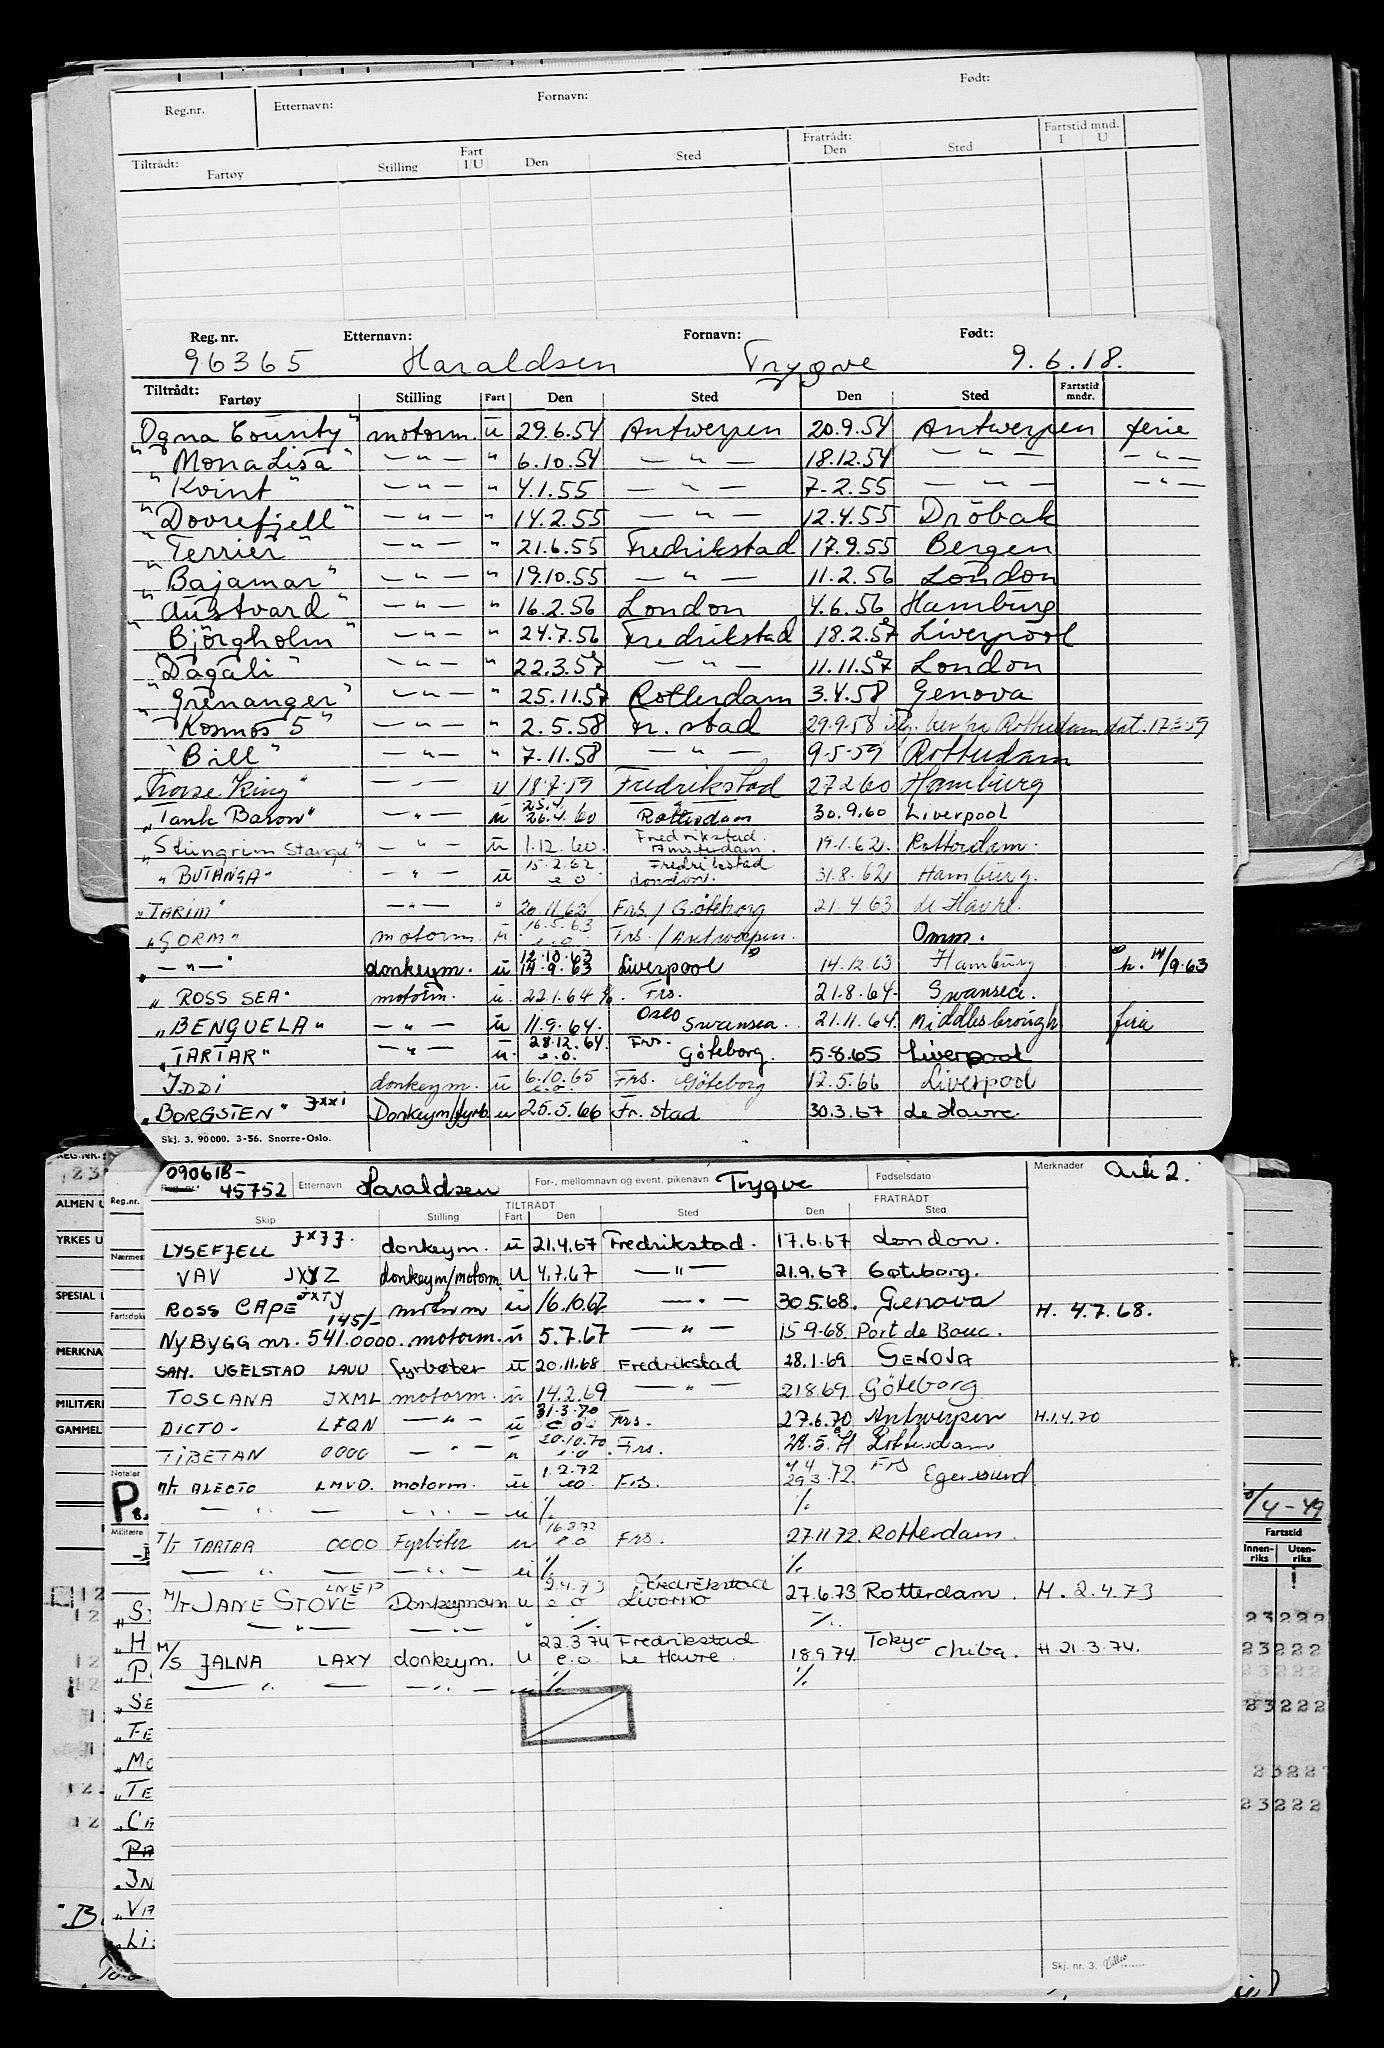 Reg.nr. Etternavn: Fornavn: Født:
Tiltrådt: Fartøy Stilling Fart I/U Den Sted Fratrådt: Den Sted Fartstid mnd. I U
Reg. nr. Etternavn: Fornavn: Født:
96365 Haraldsen Trygve 9.6.18.
Tiltrådt: Fartøy Stilling Fart Den Sted Den Sted Fartstid mndr.
"Ogna County" motorm. u 29.6.54 Antwerpen 20.9.54 Antwerpen ferie
"Mona Lisa" — " — " 6.10.54 — " — 18.12.54 — " — — " —
"Kvint" — " — " 4.1.55 — " — 7.2.55 — " — — " —
"Dovrefjell" — " — " 14.2.55 — " — 12.4.55 Dröbak
"Terrier" — " — " 21.6.55 Fredrikstad 17.9.55 Bergen
"Bajamar" — " — " 19.10.55 — " — 11.2.56 London
"Austvard" — " — " 16.2.56 London 4.6.56 Hamburg
"Björgholm" — " — " 24.7.56 Fredrikstad 18.2.57 Liverpool
"Dagali" — " — " 22.3.57 — " — 11.11.57 London
"Grenanger" — " — " 25.11.57 Rotterdam 3.4.58 Genova
"Kosmos 5" — " — " 2.5.58 Fr. stad 29.9.58 Rotterdam dat. 17.3.59
"Bill" — " — " 7.11.58 — " — 9.5.59 Rotterdam
"Norse King" — " — u 18.7.59 Fredrikstad 27.2.60 Hamburg
"Tank Baron" — " — u 25.4. 26.4.60 Rotterdam 30.9.60 Liverpool
"Steingrim Stange" — " — u 1.12.60. Fredrikstad. Amsterdam. 19.1.62. Rotterdam.
"BUTANGA" — " — u 15.2.62 e.o Fredrikstad London. 31.8.62 Hamburg.
"TARIM" — " — " 20.11.62 Frs. / Göteborg 21.4.63 le Havre.
"GORM" motorm. u 16.5.63 e.o. Frs. / Antwerpen. Omm.
" — " — " donkeym. u 12.10.63 14.9.63 Liverpool 14.12.63 Hamburg h. 14/9.63
"ROSS SEA" motorm. u. 22.1.64 Frs. 21.8.64. Swansea.
"BENGUELA" — " — u 11.9.64. Oslo Swansea. 21.11.64. Middlesbrough ferie
"TARTAR" — " — u. 28.12.64. e.o. Frs. Göteborg. 5.8.65 Liverpool
IDDI donkeym. u 6.10.65 e.o. Frs. Göteborg 12.5.66 Liverpool
"BORGSTEN" JXXI Donkeym/fyrb u 25.5.66 Fr. stad 30.3.67 le Havre
Skj. 3. 90000. 3-56. Snorre-Oslo.
090618- Reg.nr. 45752 Etternavn Haraldsen For-, mellomnavn og event. pikenavn Trygve Fødselsdato Merknader Ark 2.
TILTRÅDT FRATRÅDT
Skip Stilling Fart Den Sted Den Sted
LYSEFJELL JXJJ. donkeym. u 21.4.67 Fredrikstad. 17.6.67 London.
VAV JXYZ donkeym/motorm u 4.7.67 — " — 21.9.67 Göteborg.
ROSS CAPE JXTY motorm u 16.10.67 — " — 30.5.68. Genova H. 4.7.68.
NYBYGG nr. 541. 145/- 0000. motorm. u 5.7.67 — " — 15.9.68 Port de Bouc.
SAM. UGELSTAD LAUU fyrbøter u 20.11.68 Fredrikstad 28.1.69 GENOVA
TOSCANA JXML motorm. u 14.2.69 — " — 21869 Göteborg
DICTO. LEQN — " — u 31.3.70 e.o. Frs. 27.6.70 Antwerpen H.1.4.70
TIBETAN 0000 — " — u 20.10.70 e.o. Frs. 28.5.71 Rotterdam
M/T ALECTO LMVD. motorm. u 1.2.72 eo. Frs. 4 4 29 3.72 Frs Egersund
— " — — " — u % %
T/T TARTAR 0000 Fyrbøter u 16.8.72 e.o Frs. 27.11.72. Rotterdam.
— " — — " — u % %
M/T JANE STOVE LNEP Donkeymann u 2.4.73 e o Fredrikstad Livorno 27.6.73 Rotterdam. H. 2.4.73
— " — — " — " % %
M/S JALNA LAXY donkeym. u 22.3.74 e.o. Fredrikstad Le Havre. 18974 Tokyo Chiba. H 21.3.74.
— " — — " — u % %
Skj. nr. 3.
REG.NR.:
ALMEN U
YRKES U
SPESIAL
MERKNA
MILITÆR
GAMMEL
Reg.nr.
Nærmes
Fartsdok
Notater
P
Militære
"S
"H
"P
"SE
"FE
"MO
"TE
"CA
"PA
"IN
"VA
"LI
"B
/4-49
Fartstid
Innenriks Utenriks
23222
23222
23222
23222
2322
23222